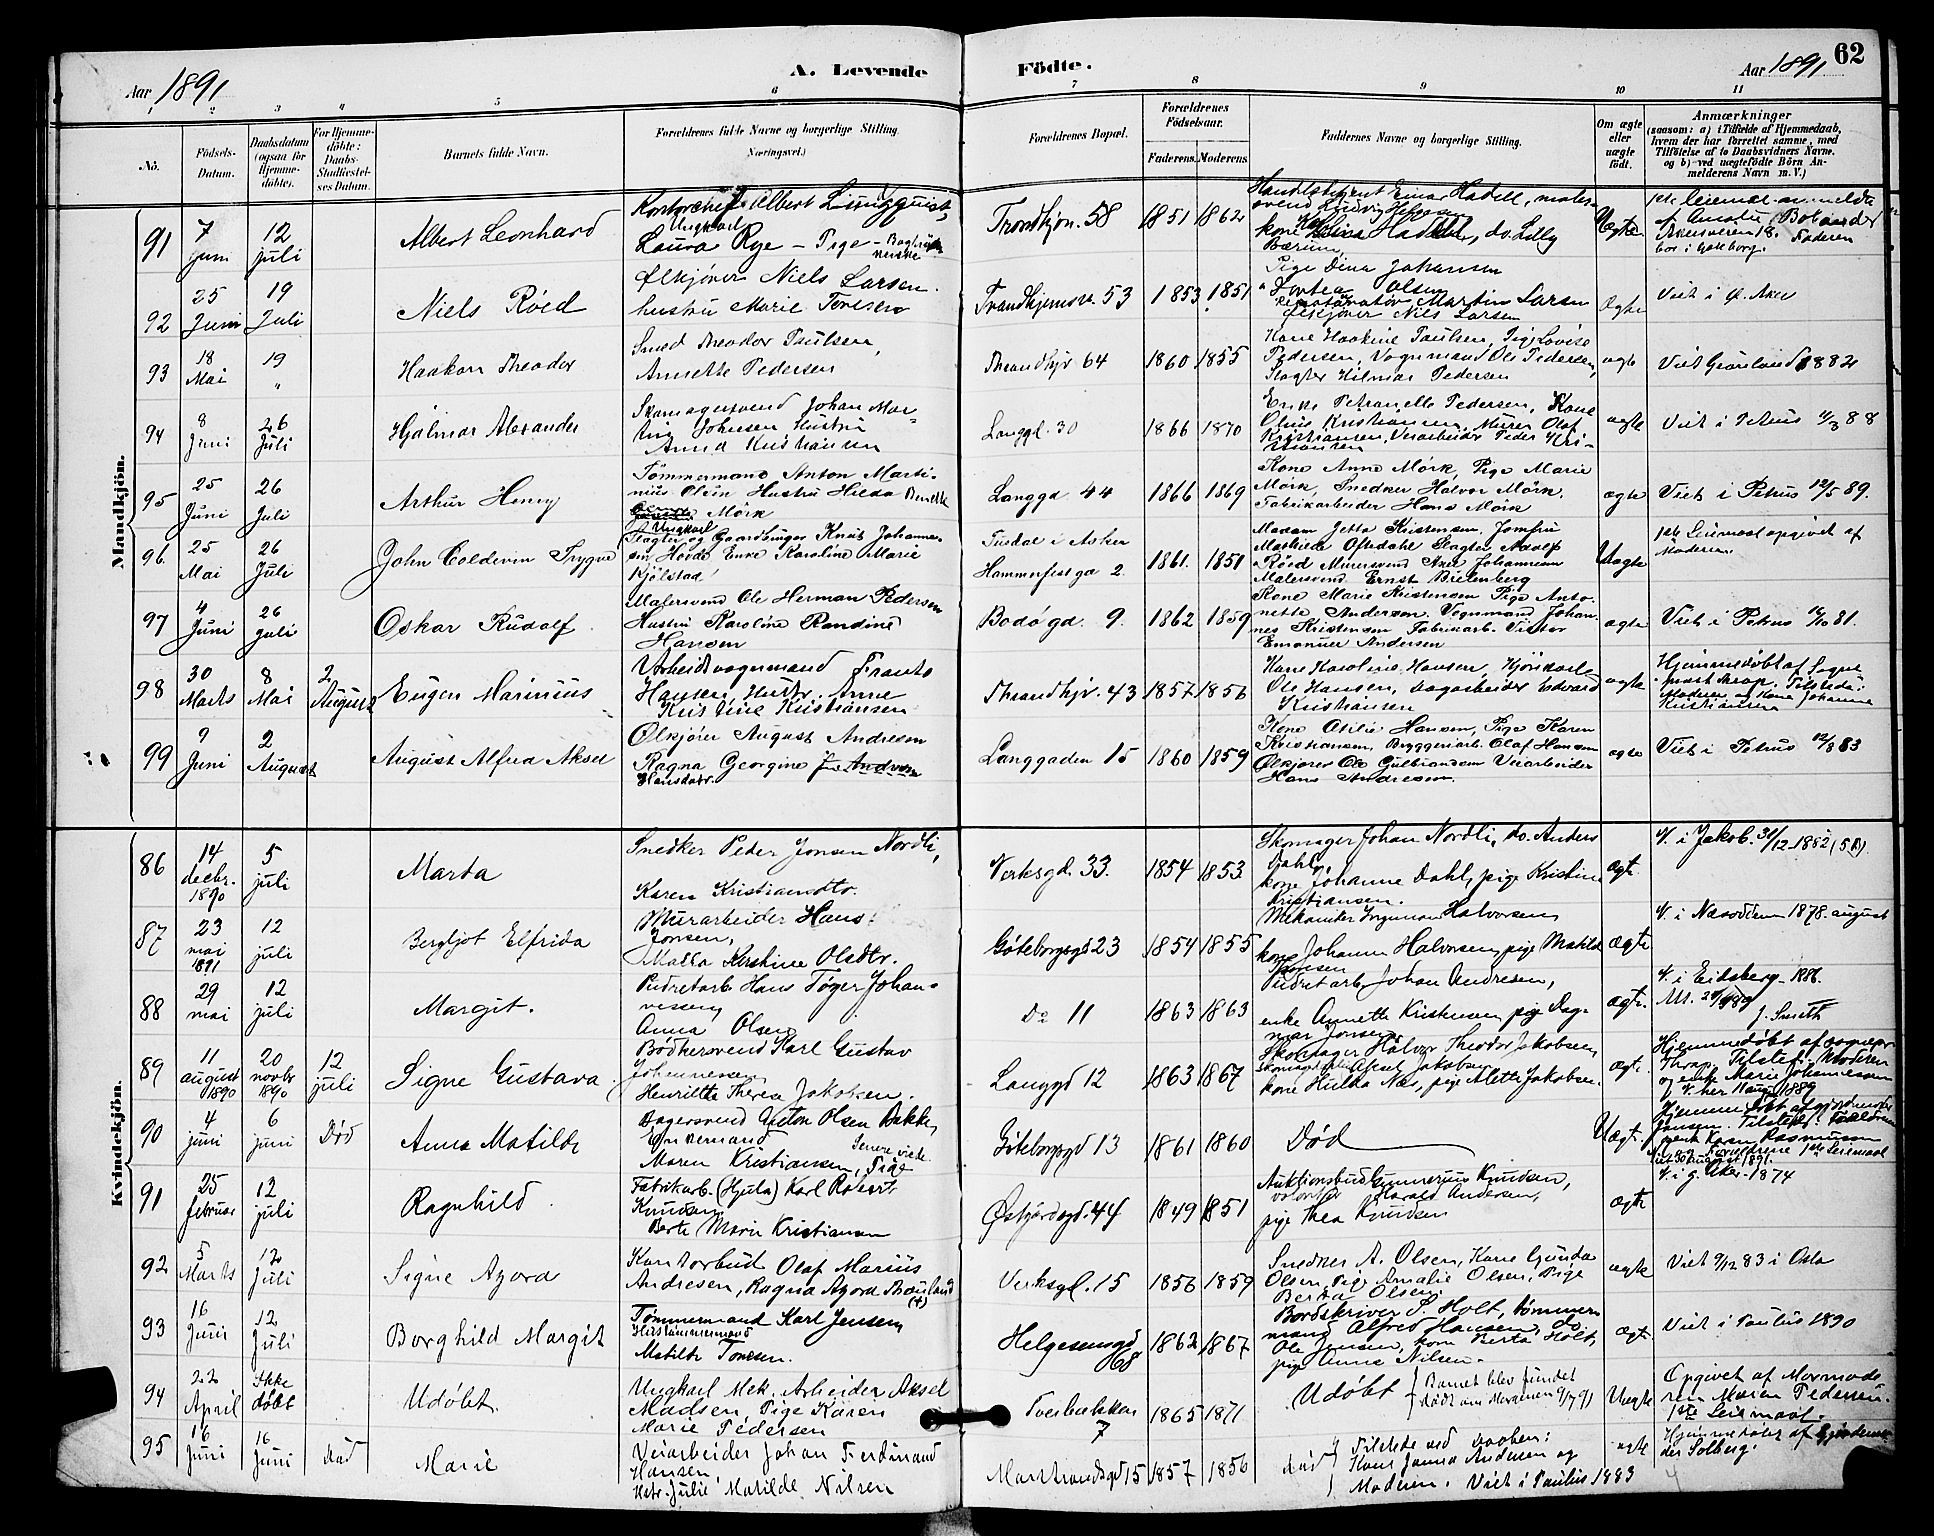 Aar 1891
A. Levende
Födte.
Aar 1891
62
1 2 3 4 5 6 7 8 9 10 11
No.
Födsels-Datum.
Daabsdatum (ogsaa for Hjemme-döbte).
For Hjemme-döbte: Daabs-Stadfæstel-ses Datum.
Barnets fulde Navn.
Forældrenes fulde Navne og borgerlige Stilling. Næringsvei.
Forældrenes Bopæl.
Forældrenes Födselsaar.
Faderens. Moderens.
Faddernes Navne og borgerlige Stilling.
Om ægte eller uægte födt.
Anmærkninger
(saasom: a) i Tilfælde af Hjemmedaab,
hvem der har forrettet samme, med
Tilföielse af to Daabsvidners Navne.
og b) ved uægtefödte Börn An-
melderens Navn m. V.)
Mandkjön.
91 7 juni 12 juli Albert Leonhard
Ungkarl
Laura Rye - Pige -
Trondhjm. 58 1851 1862
Uægte
Faderen
92 25 Juni 19 Juli Niels Röed
Ølkjörer Niels Larsen
hustru Marie
Trondhjemsv. 53 1853 1851
Pige Dina Johansen
Olsen
Martin Larsen
Ølkjörer Niels Larsen
Ægte
Viet i Ø. Aker
93 18 Mai 19 " Haakon Theodor
Smed Theodor Paulsen,
Annette Pedersen
Throndhjv 64 1860 1855
Kone Haakine Paulsen, Pige Lovise
Pedersen, Vognmand Ole Pedersen,
Slagter Hilmar Pedersen
ægte
Viet Grönland 1882
94 8 Juni 26 Juli Hjalmar Alexander
Skomagersvend Johan Mar-
tin Johnsen Hustru
Anna Kristiansen
Langgd. 30 1866 1870
Enke Petronelle Pedersen, Kone
Oline Kristiansen, Murer Olaf
Kristiansen, Veiarbeider Peder Kri-
stiansen
ægte
Viet i Petrus 11/3 88
95 25 Juni 26 Juli Arthur Henry
Tömmermand Anton Marti-
nius Olsen Hustru Hilda Benette
Mörk
Langgd 44 1866 1869
Kone Anne Mörk, Pige Marie
Mörk, Snedker Halvor Mörk,
Fabrikarbeider Hans Mörk
ægte
Viet i Petrus 12/5 89.
96. 25 Mai 26 Juli John Coldevin Trygve
Ungkarl
Slagter og Gaardbruger Knut Johanne-
sen Enke Karoline Marie
Kjölstad
i Asker
Hammerfestgd 2. 1861. 1851
Madam Jetta Kristensen, Jomfru
Mathilde Oftedahl Slagter Adolf
Röed Murersvend Axel Johannesen
Malersvend Ernst Bielenberg
Uægte
1ste Leiermaal opgivet af
Moderen.
97 4 Juni 26 juli Oskar Rudolf
Malersvend Ole Herman Pedersen
Hustru Karoline Randine
Hansen
Bodögd. 9. 1862 1859
Kone Marie Kristensen Pige Anto-
nette Andersen Vognmand Johan-
nes Kristensen Fabrikarb. Victor
Emanuel Andersen
ægte
Viet i Petrus 81.
98 30 Marts 8 Mai 2 August Eugen Marinius
Arbeidsvognmand Frants
Hansen, Hustr. Anne
Kristine Kristiansen
Throndhjv. 43 1857 1856
Kone Karoline Hansen,
Ole Hansen, Dagarbeider Edvard
Kristiansen
ægte
Hjemmedöbt af Sogne-
præst Thrap. Tilstede:
Moderen og Kone Johanne
Kristiansen
99 9 Juni 2 August August Alfred Aksel
Ølkjörer August Andresen
Ragna Georgine
Hansdatr.
Langgaden 15 1860 1859
Kone Otilie Hansen, Pige Karen
Kristiansen, Bryggeriarb. Olaf Hansen
Ølkjörer Ole Gulbrandsen Veiarbeider
Hans Andresen.
ægte
Viet i Petrus 12/8 83
Kvindekjön.
86 14 decbr. 1890 5 juli Marta
Snedker Peder Jonsen Nordli,
Karen Kristiansdtr.
Verksgd. 33. 1854 1853
Skomager Johan Nordli, do. Anders
Dahl,
kone Johanne Dahl, pige Kristine
Kristiansen.
ægt.
V. i Jakob. 31/12 1882
87 23 mai 1891 12 juli Bergljot Elfrida
Murarbeider Hans
Jonsen,
Kirstine Olsdtr.
Göteborgsgd 23 1854 1855
Mekaniker Ingvman Halvorsen
kone Johanne Halvorsen, pige Matild
Jonsen
ægte
V. i Næsodden 1878. august
88 29 mai 12 juli Margit.
Pudretarb Hans Töger Johan-
nessen,
Anna Olsen
Do 11 1863 1863
Pudretarb. Johan Andresen,
enke Annette Kristensen, pige Dag-
mar Jonsen
ægte.
V. i Eidsberg. 1886.
J. Smith
89 11 august 1890 20 novbr 1890 12 juli Signe Gustava.
Bödkersvend Karl Gustav
Johannessen
Henriette Theresa Jakobsen.
Langgd 12 1863 1867
Skomager Halvor Theodor Jakobsen,
Aksel Jakobsen
kone Hulda Næs, pige Alette Jakobsen.
ægt.
Hjemmedöbt af sognepr
Thrap. Tilsted. Moderen
og enke Marie Johannessen
V. her 11 aug. 1889
90 4 juni 6 juni Död Anna Matilde
Bagersvend Anton Olsen Bakke,
Senere viede.
Maren Kristiansen, Pige
Göteborgsgd 13 1861 1860
Död
Uægt.
Hjemmedöbt af gjordmoder
Jansen. Tilsted:
Karen Rasmussen
1ste Leiermaal
91 25 februar 12 juli Ragnhild.
Fabrikarb. (Hjula) Karl Robert
Knudsen
Berte Marie Kristiansen
Østfjordsgd. 44 1849 1851
Auktionsbud Gunnerius Knudsen,
Harald Andersen,
pige Thea Knudsen
ægte
V. i g. Aker. 1874
92 5 Marts 12 Juli Signe Agora
Kontorbud Olaf Marius
Andresen, Ragna Agora
Verksgt. 15 1856 1859
Snedker A. Olsen, Kone Gunda
Olsen, Pige Amalie Olsen, Pige
Berta Olsen
ægte
Viet 9/12 83 i Oslo
93 16 Juni 12 Juli Borghild Margit
Tömmermand Karl Jensen,
Matilde Tonesen.
Helgesensgd 68 1862 1867
Bordskriver S. Holt, tömmer-
mand Alfred Hansen, do
Ole Jensen, kone Berta Holt,
pige Anna Nilsen.
ægt.
Viet i Paulus 1890
94 22 April Ikke döbt Udöbt.
Ungkarl Mek. Arbeider Aksel
Madsen, Pige Karen
Marie Pedersen
Tverbakken 7 1865 1871
Udöbt
Barnet blev fundet
dödt om Morgenen 9/7 91
Uægte
Opgivet af Mormode-
ren Maren Pedersen.
1ste Leiermaal.
95 16 Juni 16 Juni Död Marie
Veiarbeider Johan Ferdinand
Hansen,
Hstr. Julie Matilde Nilsen
Markstrandsgd 15 1857 1856
död
Tilstede ved Daaben:
Kone Janna Andersen og
Moderen. Viet i Paulus 1883
ægte
Hjemmedöbt af Gjordemo-
der Solberg.